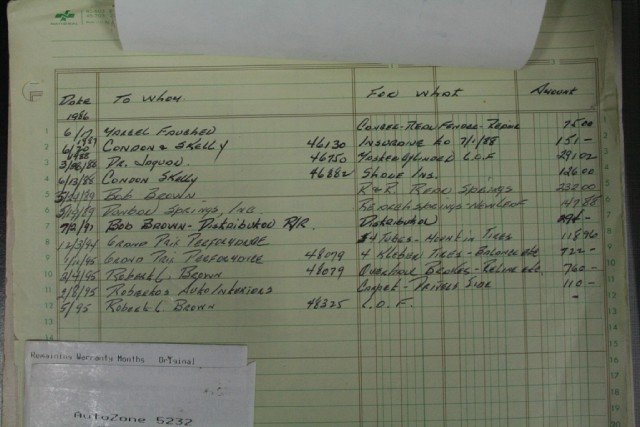 Date To Whom For What Amount
1986
1 6/17 Fender - Repair 75.00
2 6/20 1987 Condon & Skelly 46130 Insurance to 7/1/88 151 -
3 Dr. 46750 L.O.F. 291.02
4 6/13/88 Condon Skelly 46882 Ins. 126.00
5 Bob Brown R&R Rear Springs
6 Springs, Inc. Springs - 147.88
7 7/2/91 Bob Brown - Distributor R/R Distributor
8 12/3/94 Grand Prix Performance 4 Tubes - Mount in Tires 118.96
9 1/11/95 Grand Prix Performance 48079 4 Kleber Tires - Balance etc 722 -
10 Robert L. Brown 48079 Overhaul Brakes - Reline etc. 760 -
11 2/8/95 Auto Interiors Carpet - Drivers Side 110 -
12 5/95 Robert L Brown 48325 L.O.F. -
13
Remaining Warranty Months Original
AutoZone 5232